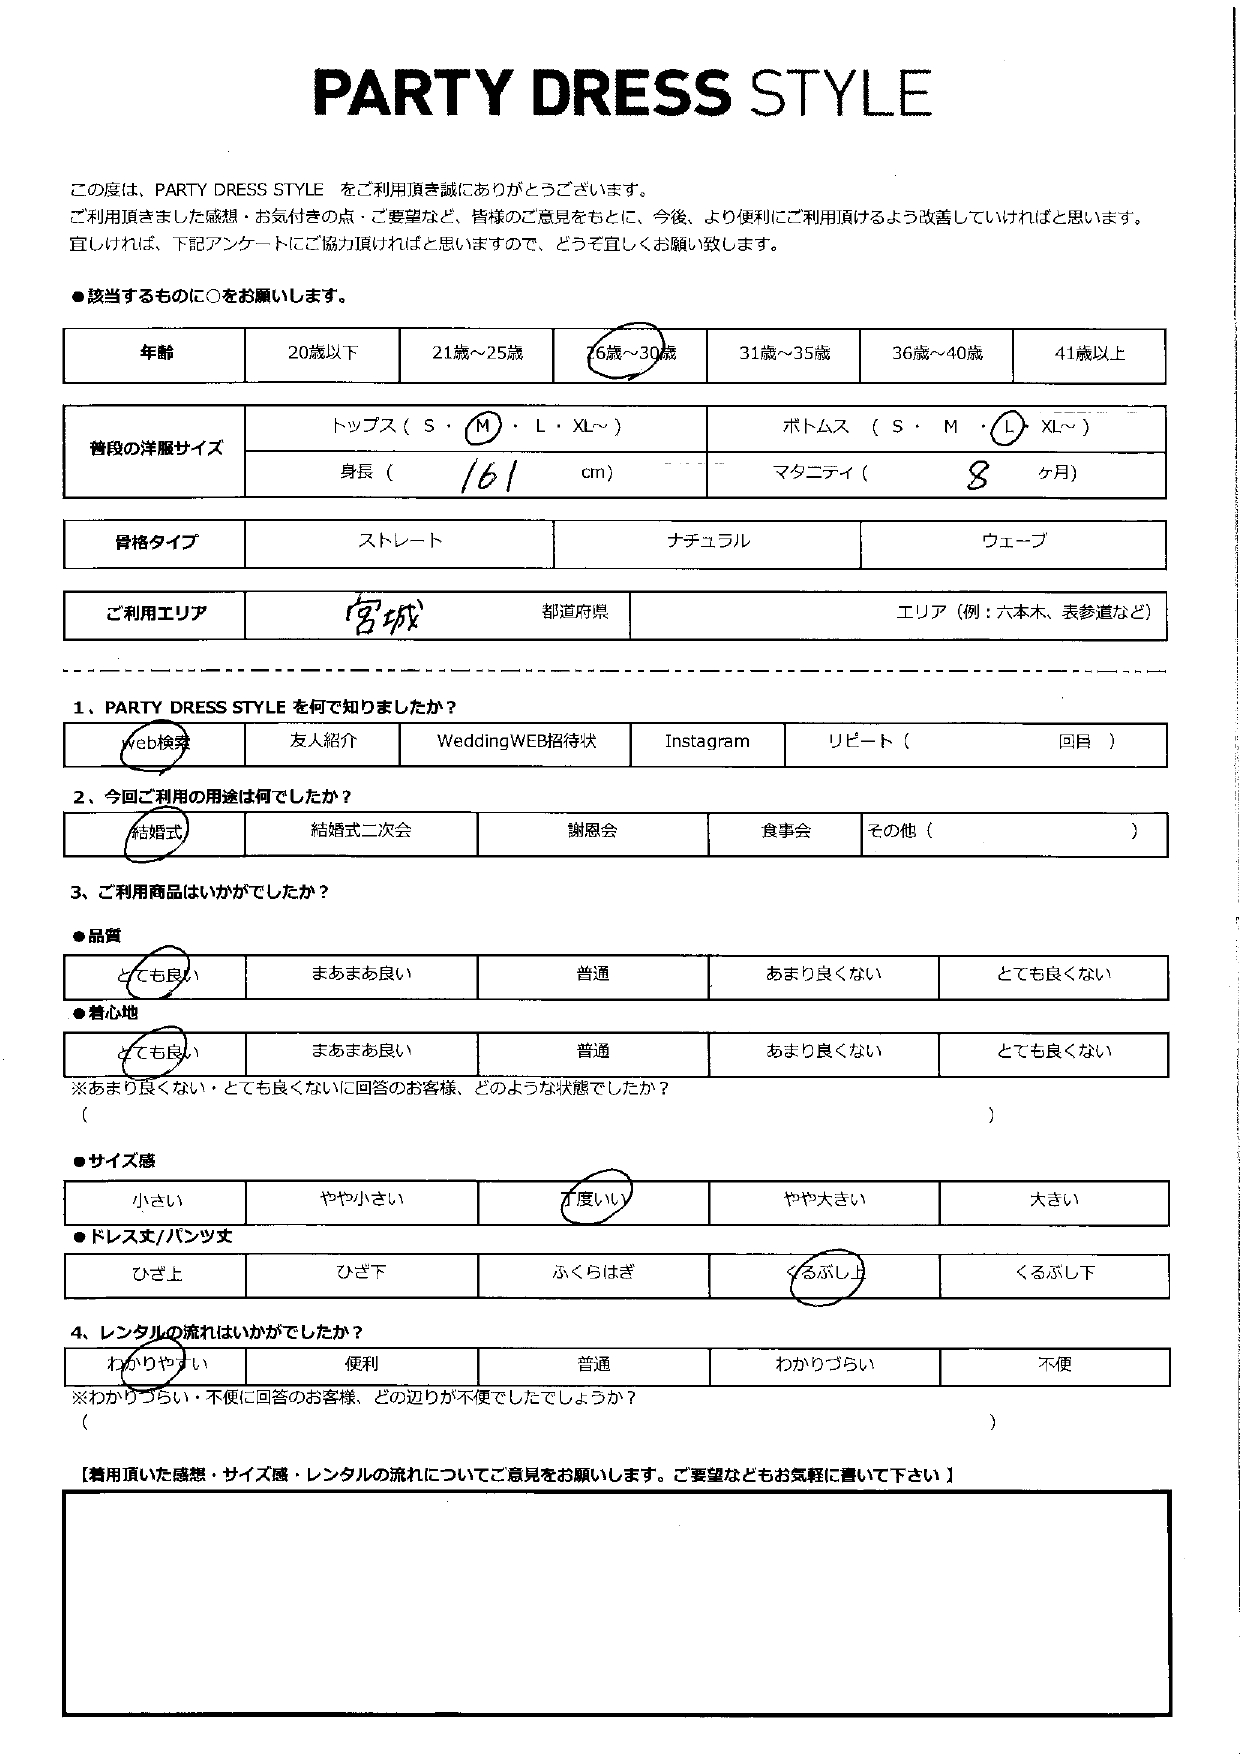 PARTY DRESS STYLE
この度は、PARTY DRESS STYLE　をご利用頂き誠にありがとうございます。
ご利用頂きました感想・お気付きの点・ご要望など、皆様のご意見をもとに、今後、より便利にご利用頂けるよう改善していければと思います。
宜しければ、下記アンケートにご協力頂ければと思いますので、どうぞ宜しくお願い致します。
●該当するものに○をお願いします。
年齢 20歳以下 21歳～25歳 26歳～30歳 31歳～35歳 36歳～40歳 41歳以上
普段の洋服サイズ
トップス ( S ・ M ・ L ・ XL～ ) ボトムス ( S ・ M ・ L ・ XL～ )
身長 ( 161 cm) マタニティ ( 8 ヶ月)
骨格タイプ ストレート ナチュラル ウェーブ
ご利用エリア 宮城 都道府県 エリア（例：六本木、表参道など）
1、PARTY DRESS STYLE を何で知りましたか？
web検索 友人紹介 WeddingWEB招待状 Instagram リピート ( 回目 )
2、今回ご利用の用途は何でしたか？
結婚式 結婚式二次会 謝恩会 食事会 その他 ( )
3、ご利用商品はいかがでしたか？
●品質
とても良い まあまあ良い 普通 あまり良くない とても良くない
●着心地
とても良い まあまあ良い 普通 あまり良くない とても良くない
※あまり良くない・とても良くないに回答のお客様、どのような状態でしたか？
( )
●サイズ感
小さい やや小さい 丁度いい やや大きい 大きい
●ドレス丈/パンツ丈
ひざ上 ひざ下 ふくらはぎ くるぶし上 くるぶし下
4、レンタルの流れはいかがでしたか？
わかりやすい 便利 普通 わかりづらい 不便
※わかりづらい・不便に回答のお客様、どの辺りが不便でしたでしょうか？
( )
【着用頂いた感想・サイズ感・レンタルの流れについてご意見をお願いします。ご要望などもお気軽に書いて下さい 】